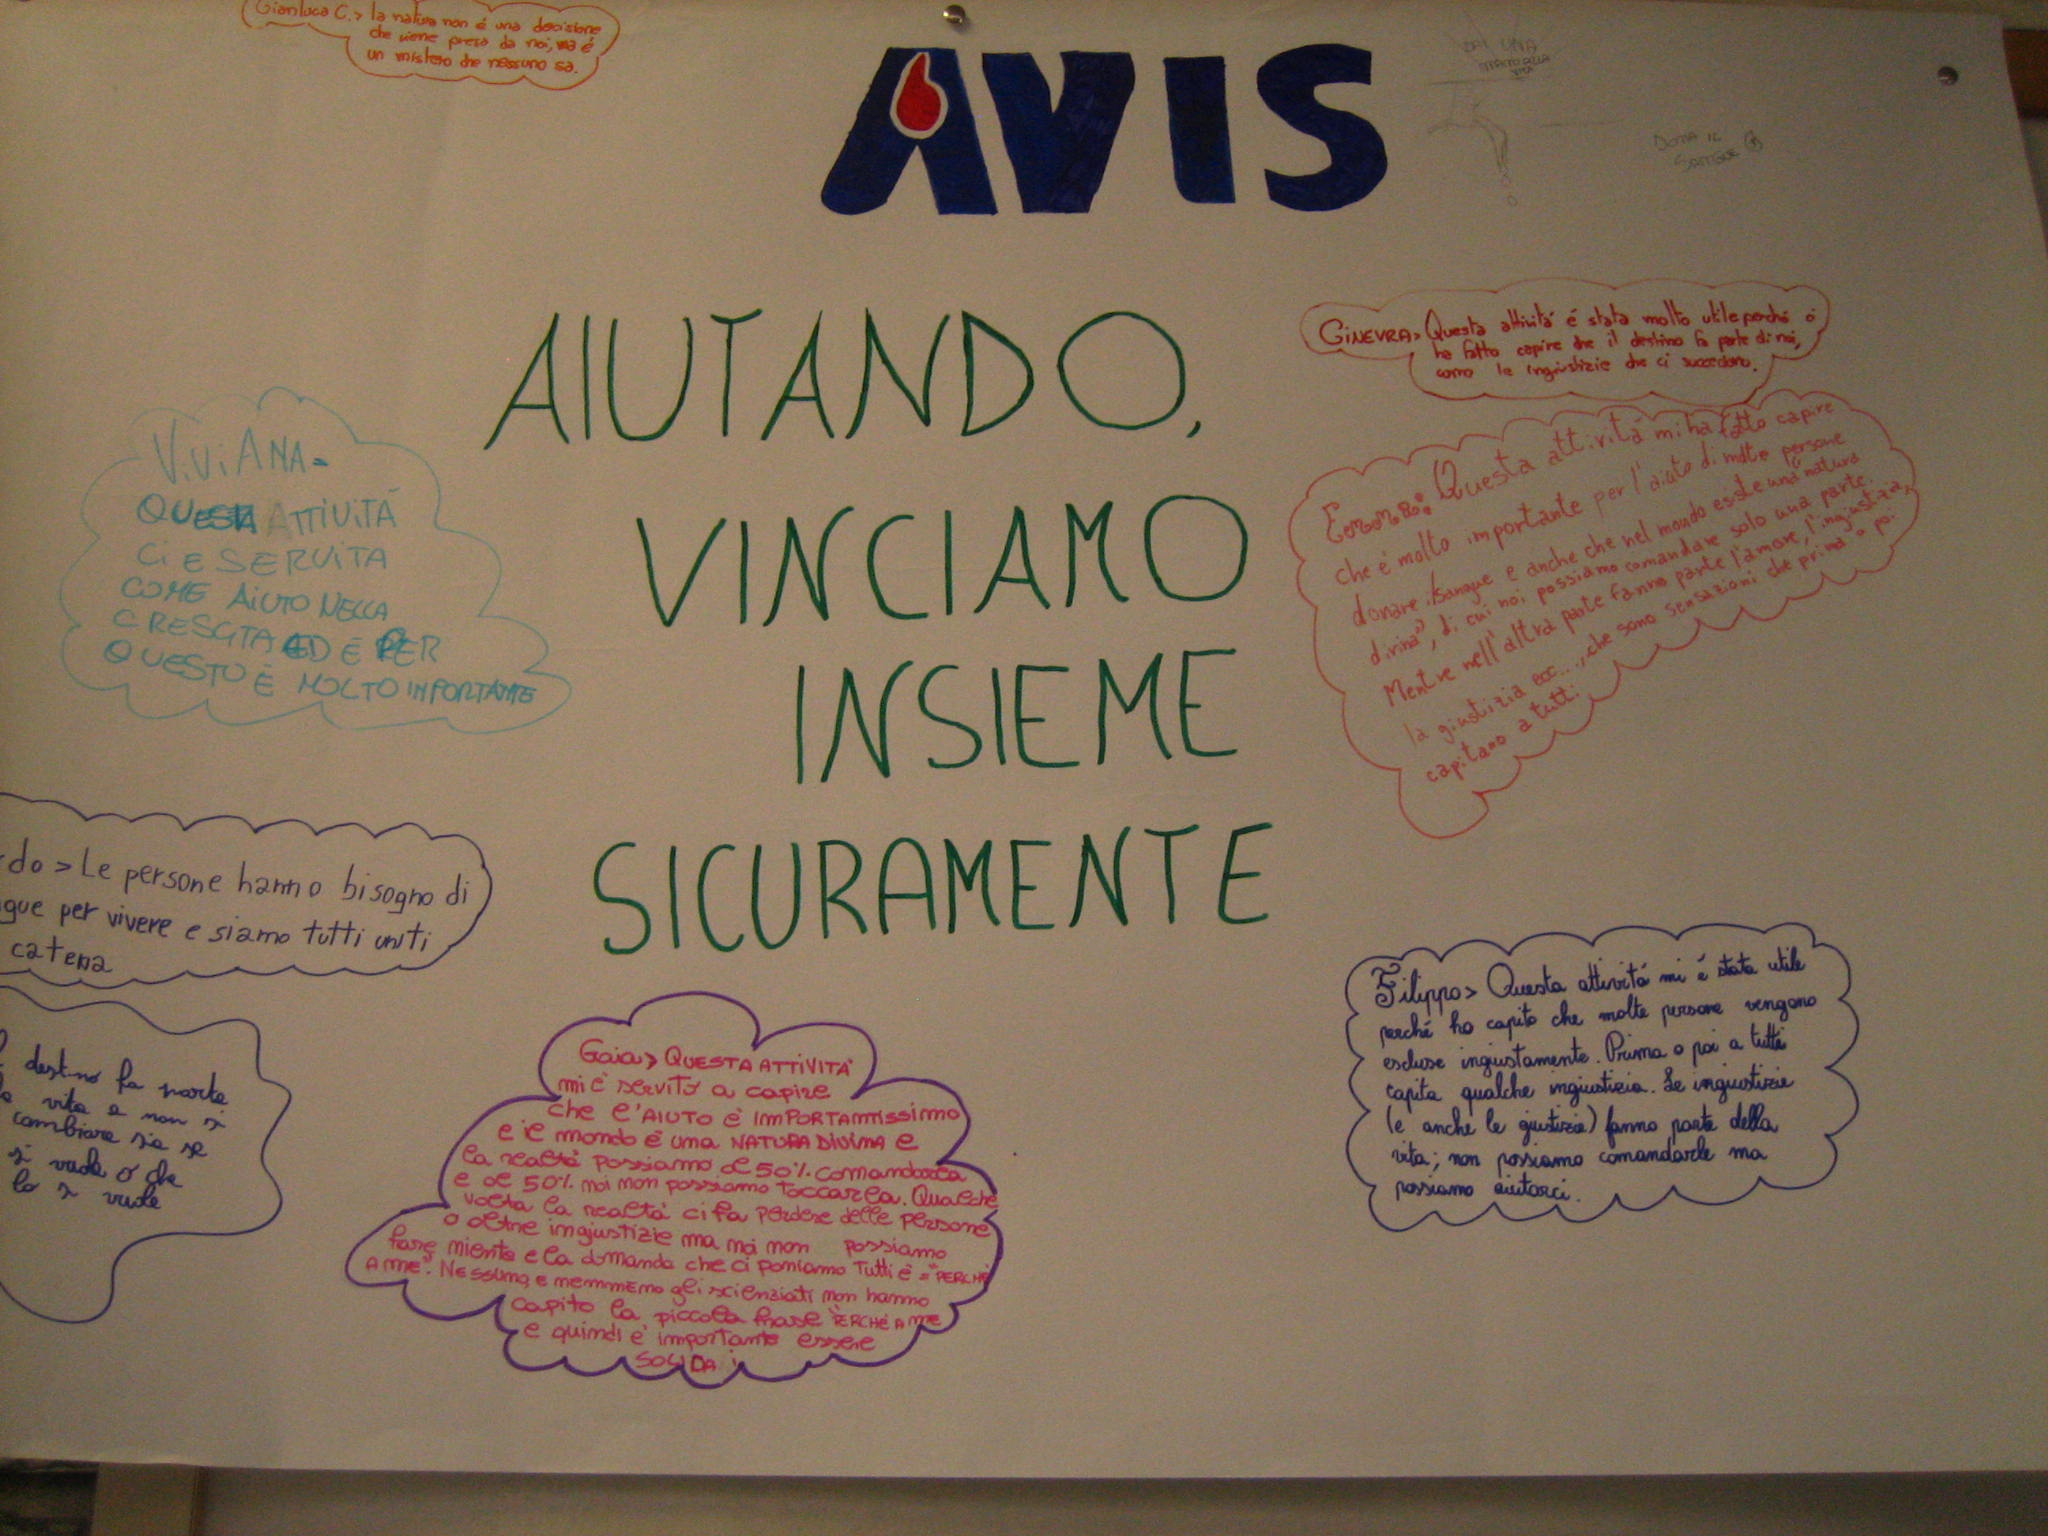 Gianluca C. > la natura non é una decisione
che viene presa da noi, ma é
un mistero che nessuno sa.
AVIS
DAI UNA
DONA IL
SANGUE
AIUTANDO,
VINCIAMO
INSIEME
SICURAMENTE
GINEVRA > Questa attivitá é stata molto utile perché ci
ha fatto capire che il destino fa parte di noi,
come le ingiustizie che ci succedono.
ViViANA =
QUESTA ATTIViTÁ
Ci E SERViTA
COME AiUTO NELLA
CRESCITA ED É PER
QUESTO É MOLTO INPORTANTE
Emma: Questa attivitá mi ha fatto capire
che é molto importante per l'aiuto di molte persone
donare il sangue e anche che nel mondo esiste una "natura
divina", di cui noi possiamo comandare solo una parte.
Mentre nell'altra parte fanno parte l'amore, l'ingiustizia,
la giustizia ecc..., che sono sensazioni che prima o poi
capitano a tutti.
rdo > Le persone hanno bisogno di
gue per vivere e siamo tutti uniti
catena
destino fa parte
vita e non si
cambiare sia se
si vuole o che
lo si vuole
Gaia > QUESTA ATTIVITÀ
mi è servita a capire
che l'AIUTO è IMPORTANTISSIMO
e il mondo è una NATURA DIVINA e
la realtà possiamo al 50% comandarla
e al 50% noi non possiamo toccarla. Qualche
volta la realtà ci fa perdere delle persone
o altre ingiustizie ma noi non possiamo
fare niente e la domanda che ci poniamo tutti è = "PERCHÈ
A ME". Nessuno, e nemmemo gli scienziati non hanno
capito la piccola frase "PERCHÉ A ME
e quindi è importante essere
SOLIDA i
Filippo > Questa attivitá mi é stata utile
perché ho capito che molte persone vengono
escluse ingiustamente. Prima o poi a tutti
capita qualche ingiustizia. Le ingiustizie
(e anche le giustizie) fanno parte della
vita; non possiamo comandarle ma
possiamo aiutarci.